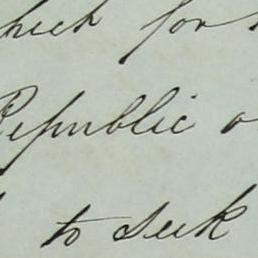 check for
Republic
to seek